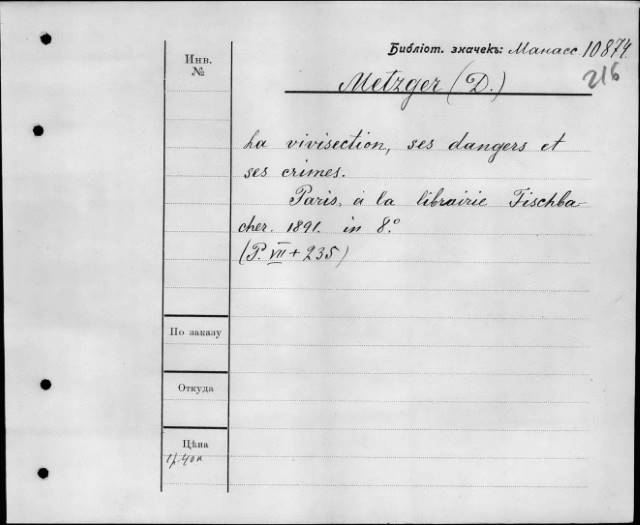 Библіот. значекъ: Манасс. 10874.
216
Инв.
№
Metzger (D.)
La vivisection, ses dangers et
ses crimes.
Paris, à la librairie Fischba-
cher. 1891. in 8.°
(P. VII + 235)
По заказу
Откуда
Цѣна